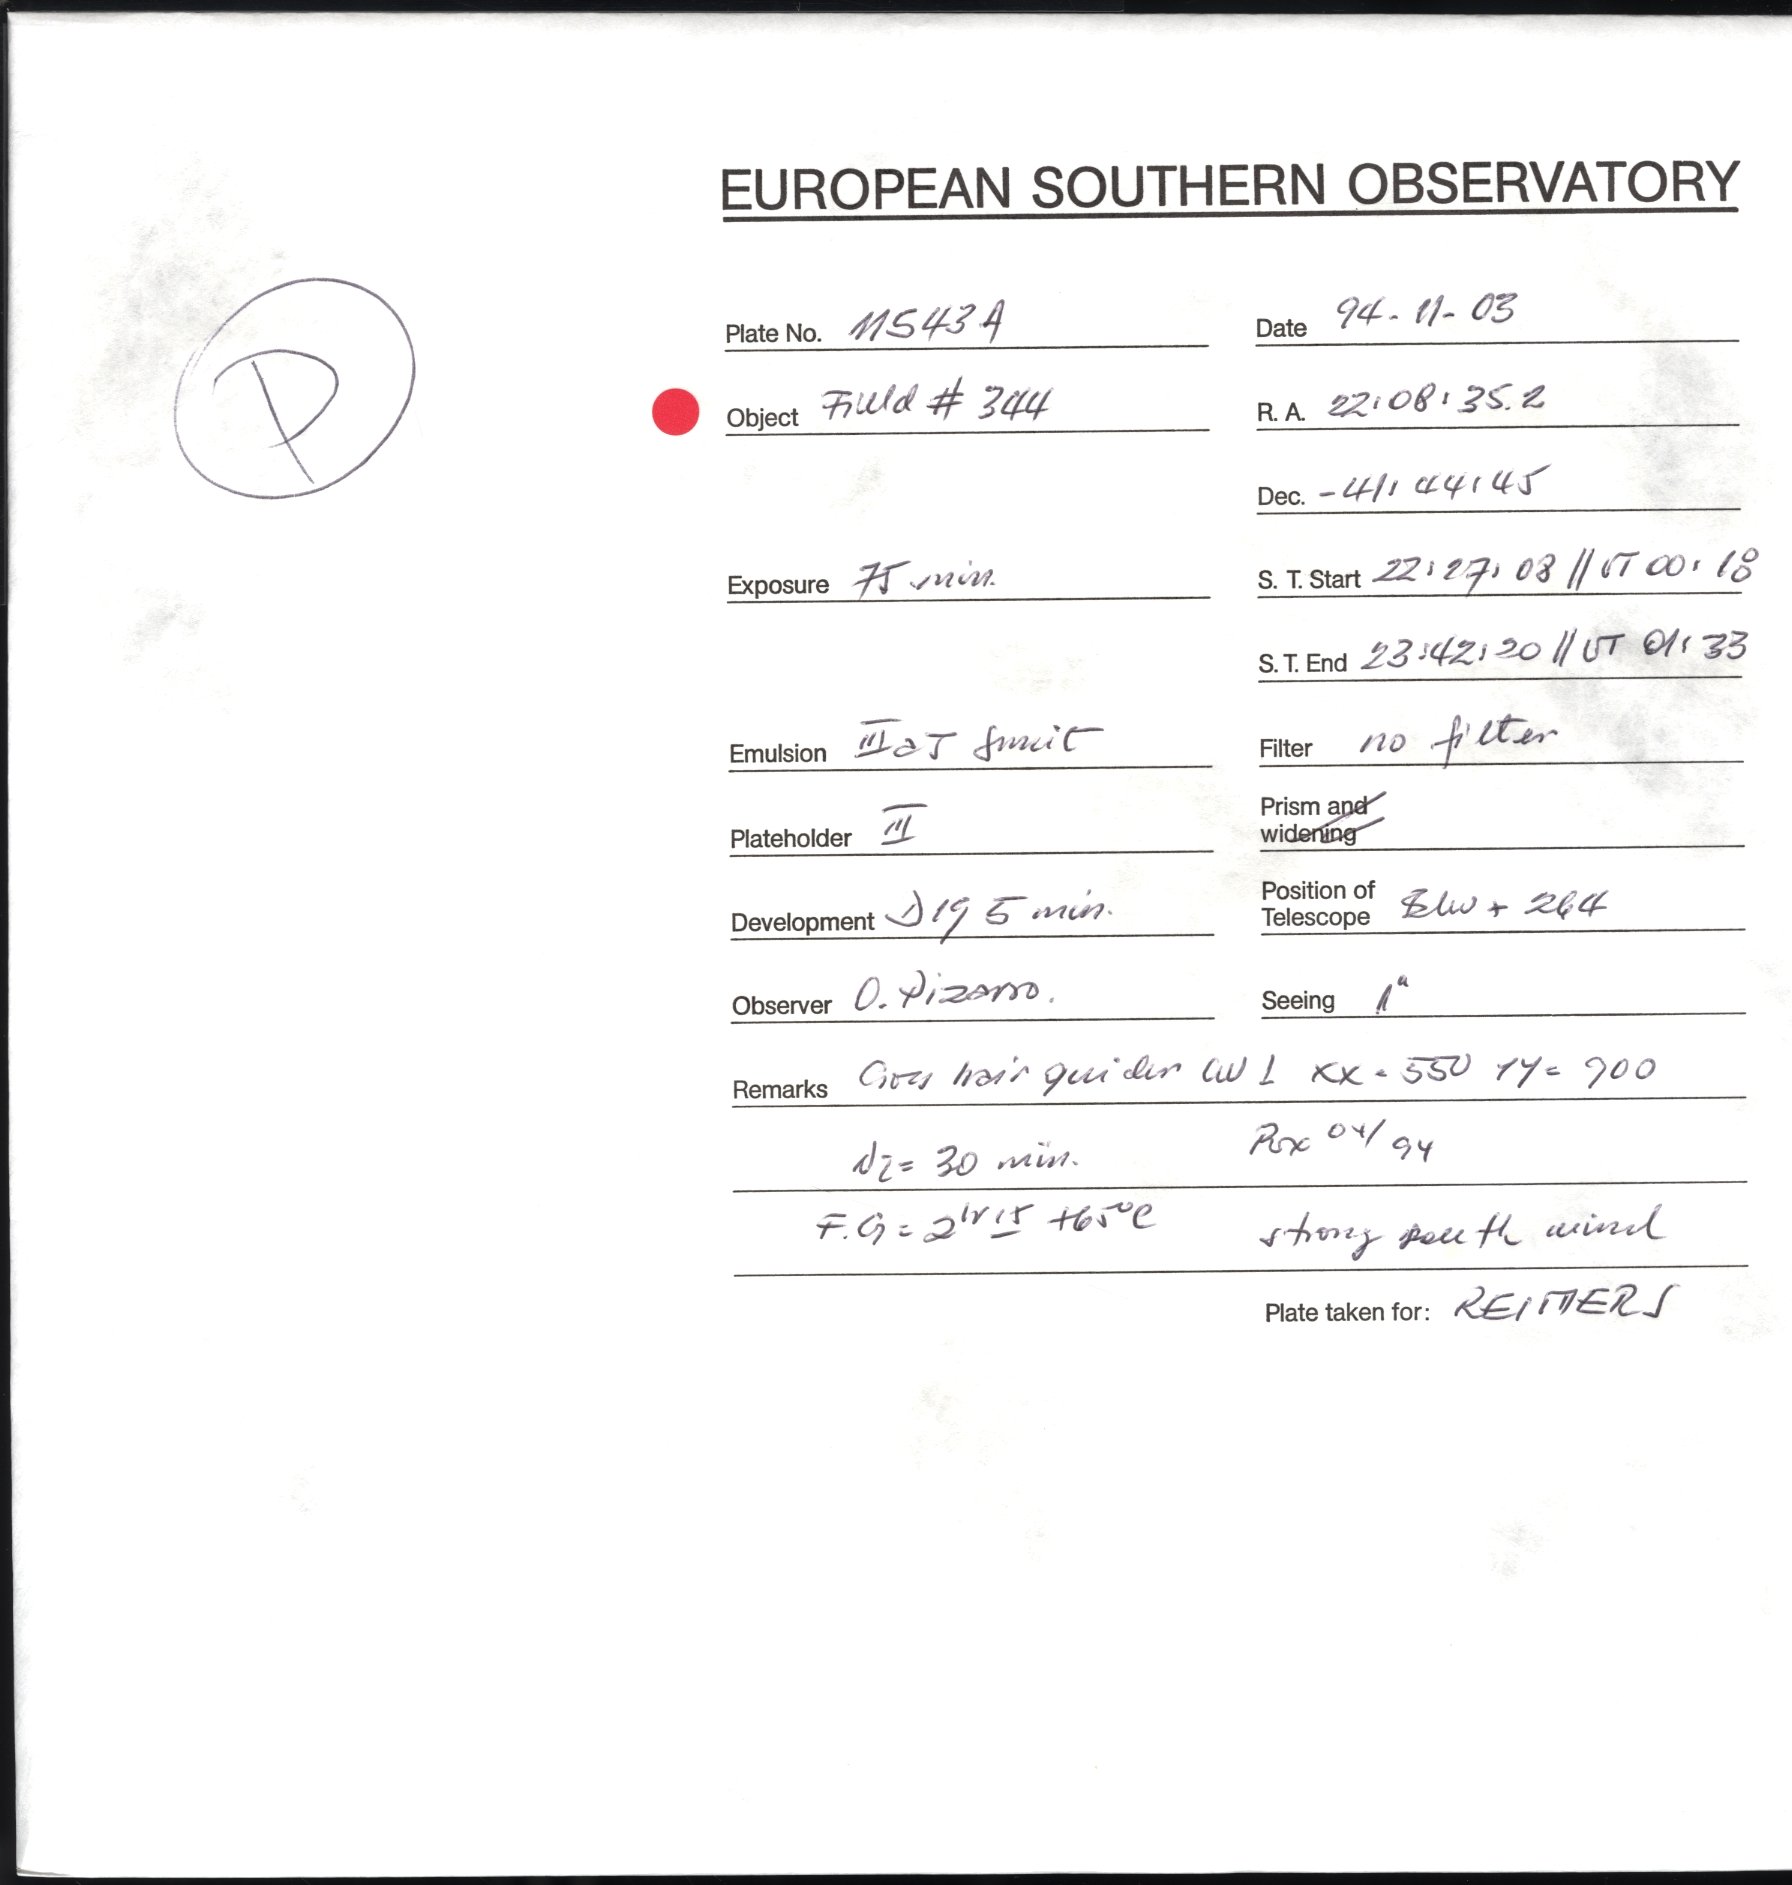 EUROPEAN SOUTHERN OBSERVATORY
P
Plate No. 11543A
Date 94-11-03
Object Field # 344
R. A. 22:08:35.2
Dec. -41:44:45
Exposure 75 min.
S. T. Start 22:27:08 // UT 00:18
S. T. End 23:42:20 // UT 01:33
Emulsion III aJ
Filter no filter
Plateholder III
Prism and widening
Development D19 5 min.
Position of Telescope + 264
Observer O. Pizarro.
Seeing 1"
Remarks Cros hair guider XX = 550 YY = 900
N2 = 30 min. 04/94
F.G = +65°C strong south wind
Plate taken for: REIMERS